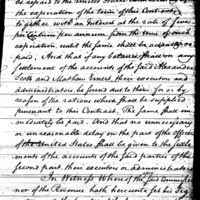 the expiration of the term of this Contract
together with an Interest at the rate of five
per Centum per annum from the time of such
expiration until the same shall be
paid. And that if any balance shall on
settlement of the accounts of the said Alexander
Scott and Matthew Ernest their executors and
administrators be found due to them for or by
reason of the rations which shall be supplied
pursuant to this Contract, the same shall im
mediately be paid. And that no unnecessary
or unreasonable delay on the part of the officers
of the United States shall be given to the settle
ments of the accounts of the said parties of the
second part, their executors or administrators.
In Witness Whereof the said Commissio
ner of the Revenue hath hereunto set his